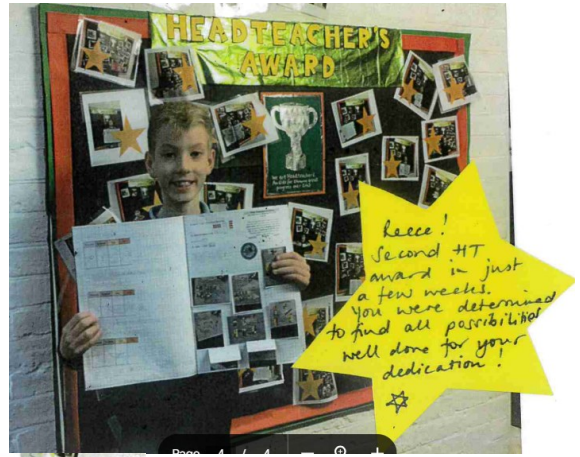 HEADTEACHER'S
AWARD
Reece!
Second HT
award in just
a few weeks.
You were determined
to find all possibilities
well done for your
dedication!
Page 4 / 4